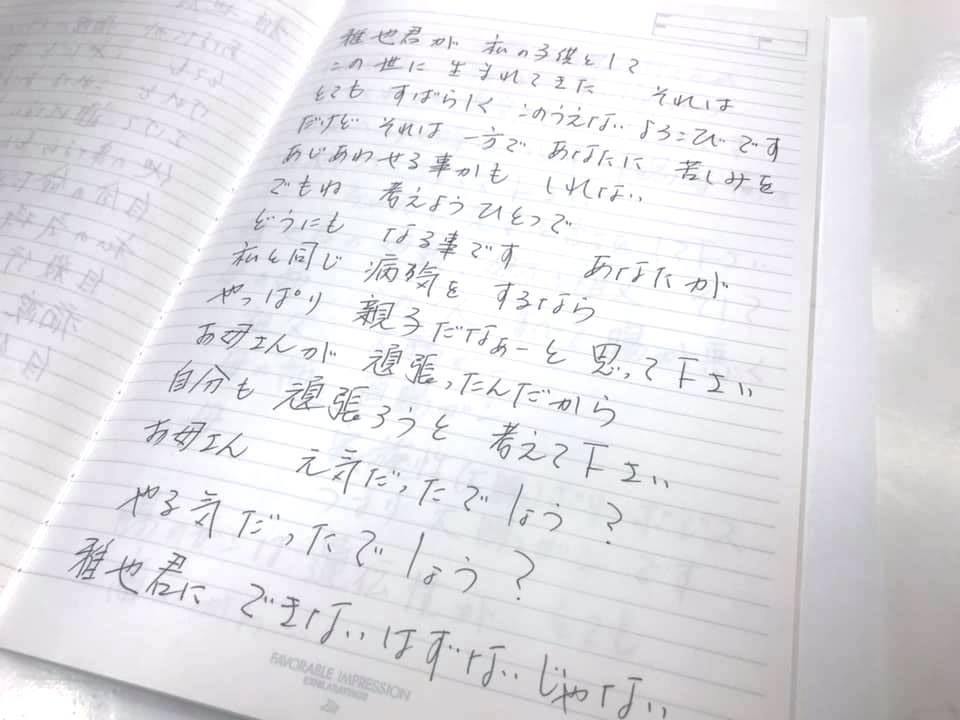 雅也君が 私の子供として
この世に 生まれてきた それは
とても すばらしく このうえない よろこびです
だけど それは 一方で あなたに 苦しみを
あじあわせる事かも しれない
でもね 考えようひとつで
どうにも なる事です あなたが
私と同じ 病気を するなら
やっぱり 親子だなぁーと 思って下さい
お母さんが 頑張ったんだから
自分も 頑張ろうと 考えて下さい
お母さん 元気だったでしょう?
やる気だったでしょう?
雅也君に できないはずないじゃない
FAVORABLE IMPRESSION